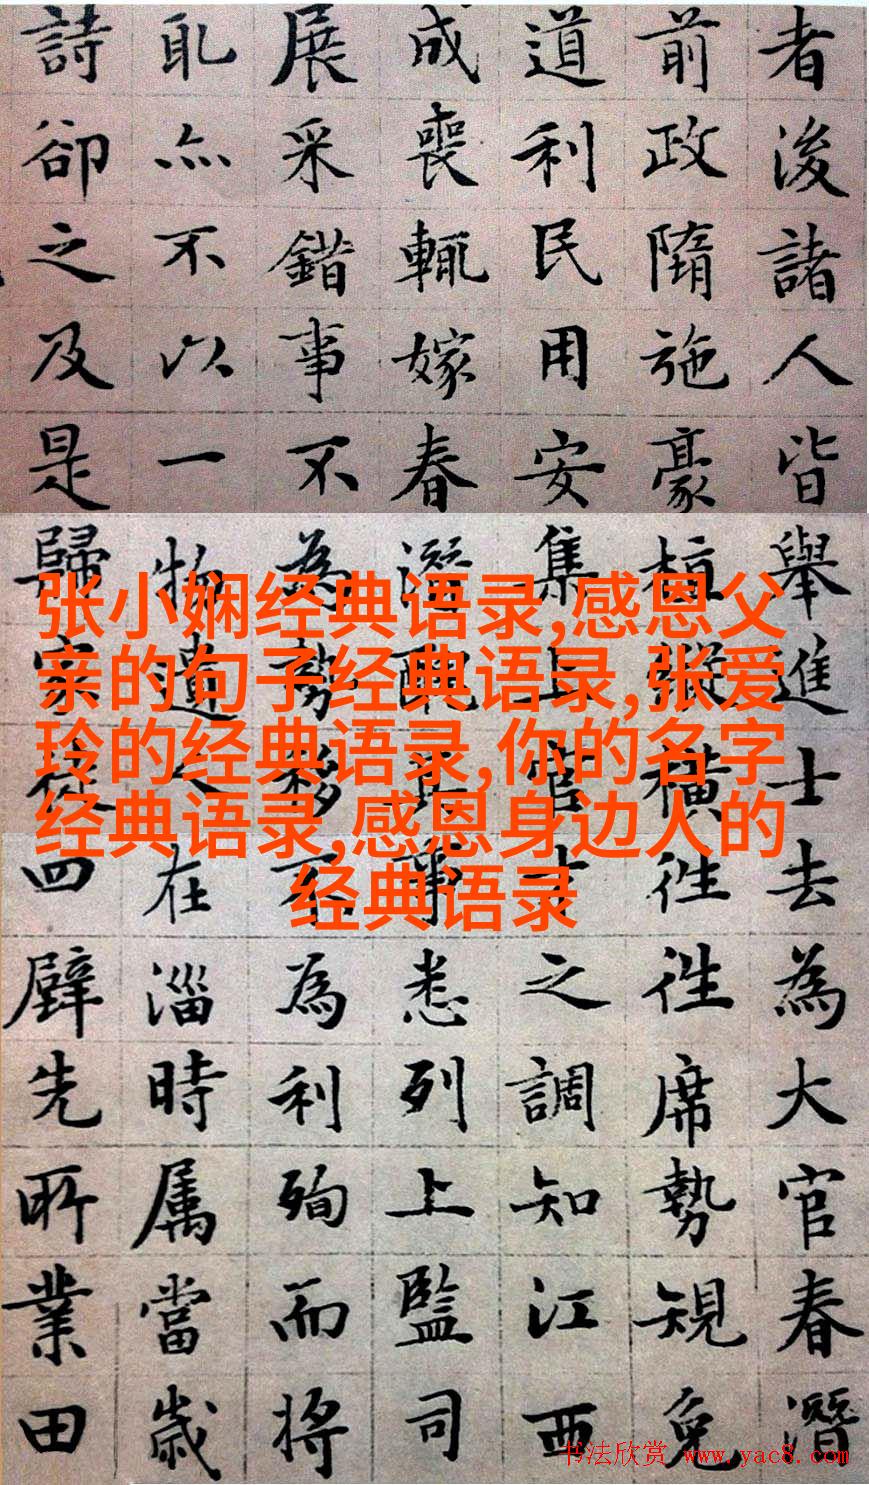 者後諸人皆舉進士去為大官春潛
前政隋施豪縱橫徃徃席勢規免
道利民用安集上官才之調知江西
成喪輒嫁春潛配其事悉列上監司
展采錯事不為勢移不為利殉而將
耴亦不以一物遺人在淄時属當歲
詩卻之及是歸家徒四壁先所業田
张小娴经典语录,感恩父
亲的句子经典语录,张爱
玲的经典语录,你的名字
经典语录,感恩身边人的
经典语录
书法欣赏 www.yac8.com